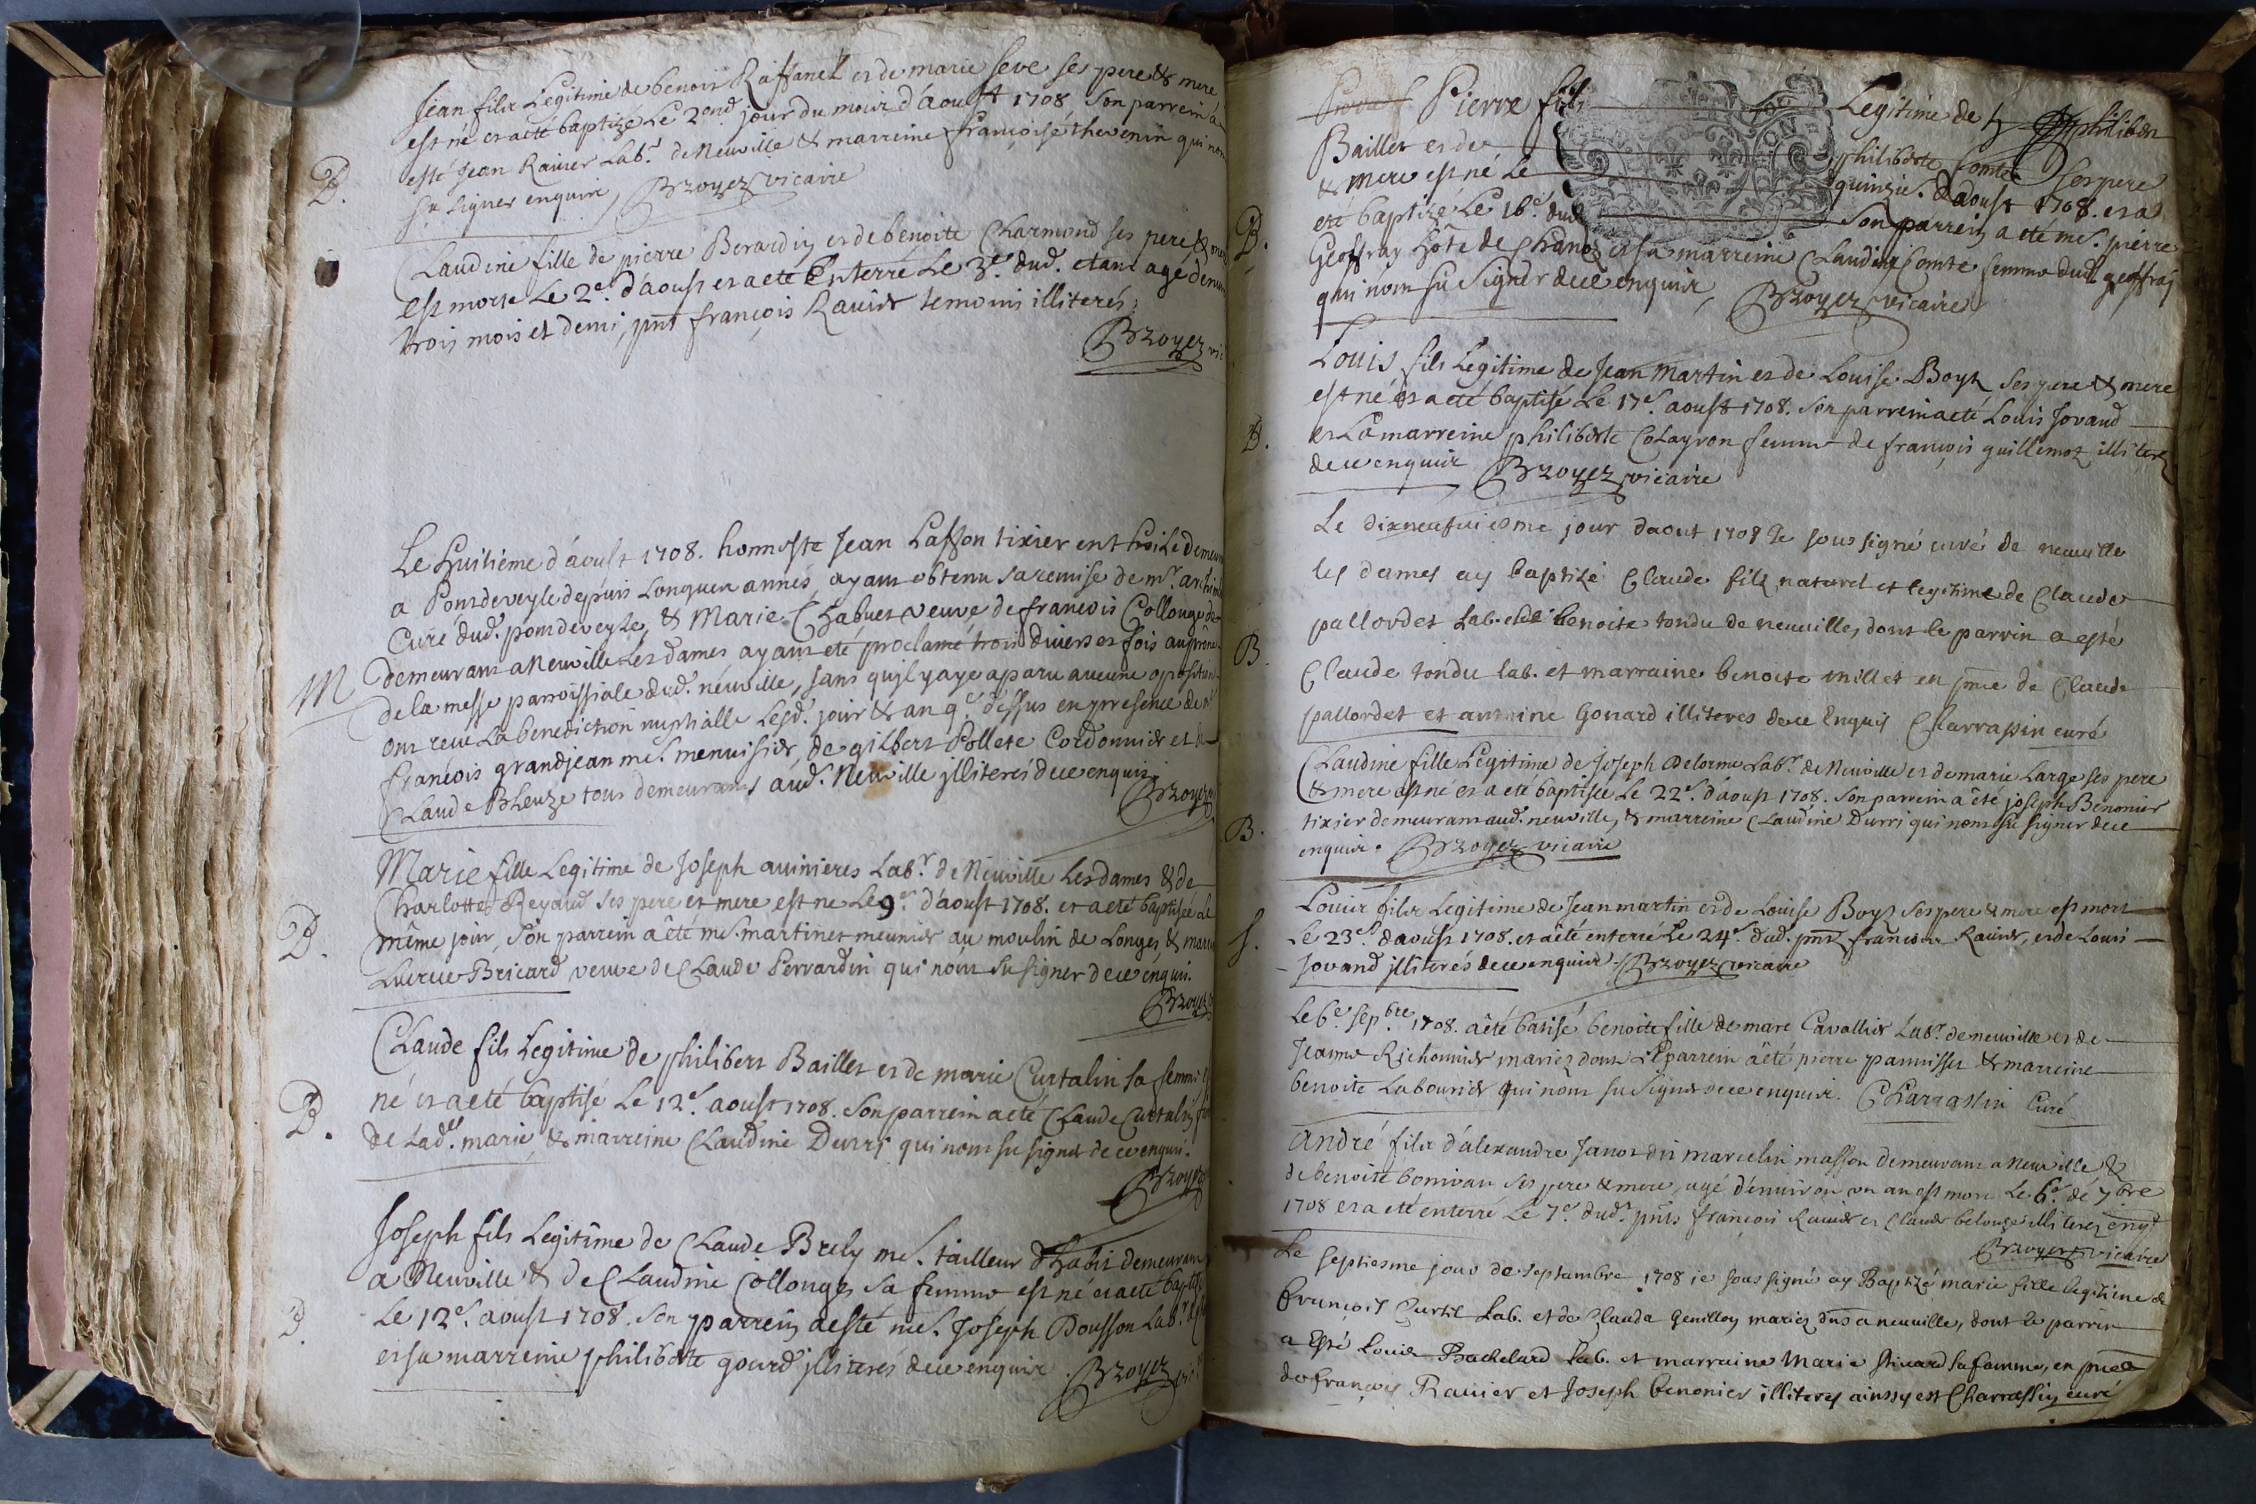 Jean fils Legitime de benoit Raffanel et de marie seve ses pere & mere
est né et a eté baptizé Le 2end jour du mois d'aoust 1708 Son parrein a
esté Jean Ravier Labr. de Neuville & marreine françoise thevenin qui
B.
su signer enquis, Brzoyez vicaire
Claudine fille de pierre Berardin et de benoite Charmond ses pere &
est morte Le 2e. d'aoust et a eté Enterré Le 3e. dud. etant agé
trois mois et demi, pnt françois Ravier temoins illiterés,
Brzoyez
Le huitiéme d'aoust 1708. honneste Jean Lasson tixier en
a Pondeveyle depuis Longues annés, ayant obtenu sa remise de mr.
Curé dud. pondeveyle, & Marie Chabuet veuve de francois Collonge
demeurant a Neuville Les dames ayant eté proclamé trois diverses fois au prone
M
de la messe parroissiale dud. neuville, sans qu'jl y aye aparu aucune oposition
ont receu La benediction nuptialle Lesd. jour & an qe. dessus en presence de
francois grandjean me. menuisier, de gilbert Pollete Cordonnier et
Claude Bleuze tous demeurants aud. Neuville jlliterés de ce enquis.
Brzoyez
Marie fille Legitime de Joseph avinieres Labr. de Neuville Les dames & de
Charlotte Reyaud ses pere et mere est ne Le 9e. d'aoust 1708. et a eté baptisée Le
B.
même jour, son parrein a êté me. martinet meunier au moulin de Longes &
Lucrece Bricard veuve de Claude Pervardin qui n'ont su signer de ce enquis.
Brzoyez
Claude fils Legitime de philibert Baillet et de marie Curtalin sa femme
né et a eté baptisé Le 12e. aoust 1708. Son parrein a eté Claude Curtalin
B.
de Lade. marie, & marreine Claudine Durri qui n'ont su signer de ce enquis.
Brzoyez
Joseph fils Legitime de Claude Brely me. tailleur d'habit demeurant
a Neuville & de Claudine Collonge sa femme est né et a eté
B.
Le 12e. aoust 1708. Son parrein a esté me. Joseph Pousson Labr.
et sa marreine philiberte gourd jlliterés de ce enquis. Brzoyez
Pierre fils Legitime de philibert
Baillet et de philiberte Comte Ses pere
& mere est né Le quinzie. d'aoust 1708. et a
eté baptizé Le 16e. dud. Son parrein a eté me. pierre
B.
Geoffray hôte de Chanoz et sa marreine Claudine Comte femme dud. geoffray
qui n'ont su signer de ce enquis, Brzoyez vicaire
Louis fils Legitime de Jean Martin et de Louise Boyt, ses pere & mere
est né et a eté baptisé Le 17e. aoust 1708. Son parrein a eté Louis Jovand
B.
et La marreine philiberte Colayron femme de françois guillemot illiterez
de ce enquis Brzoyez vicaire
Le dixneufviesme jour daout 1708 Je sous signé curé de neuville
les dames ay baptizé Claude filz naturel et legitime de Claude
pallordet Lab. et de benoite tondu de neuville, dont le parrin a esté
B.
Claude tondu lab. et marraine benoite millet en pnce de Claude
pallordet et antoine Gonard illiteres de ce Enquis Charrassin curé
Claudine fille Legitime de Joseph Delorme Labr. de Neuville et de marie Large ses pere
& mere est né et a eté baptisée Le 22e. d'aoust 1708. Son parrein a êté joseph Benonier
B.
tixier demeurant aud. neuville, & marreine Claudine Durri qui n'ont su signer de ce
enquis. Brzoyez vicaire
Louis fils Legitime de Jean martin et de Louise Boyt ses pere & mere est mort
S.
Le 23e. d'aoust 1708. et a êté enterré Le 24e. dud. pnt francois Ravier, et de Louis
Jovand jlliterés de ce enquis. Brzoyez vicaire
Le 6e. sepbre 1708. a êté batisé benoite fille de marc Cavallier Labr. de neuville et de
Jeanne Richonnier mariez dont Le parrein a êté pierre pannisset & marreine
benoite Labourier qui n'ont su signer de ce enquis. Charrassin Curé
André fils d'alexandre Janot dit marcelin masson demeurant a Neuville &
de benoite bonivan ses pere & mere, agé d'environ un an est mort Le 6e. de 7bre
1708 et a eté enterré Le 7e. dud. pnts françois Ravier et Claude belouze illiterez enqs.
Brzoyez vicaire
Le septiesme jour de septembre 1708 je sous signé ay Baptizé marie fille legitime de
françois Curtil Lab. et de Clauda Genillon mariez dns a neuville, dont le parrin
a Esté Louis Bachelard Lab. et marraine Marie Sivard sa femme, en pnce
de françois Ravier et Joseph benonier illiterez ainsy est Charrassin curé